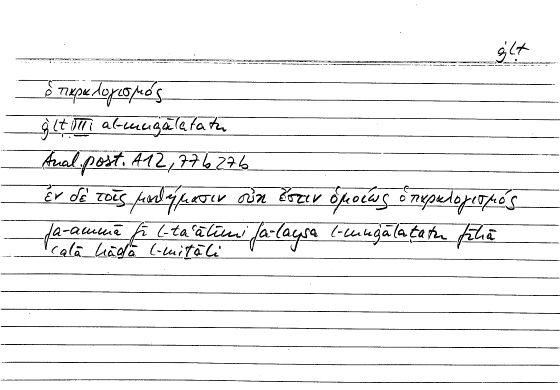 ġlṭ
ὁ παραλογισμός
ġlṭ III al-muġālaṭatu
Anal. post. A12, 77b27b
ἐν δὲ τοῖς μαθήμασιν οὐκ ἔστιν ὁμοίως ὁ παραλογισμός
fa-ammā fī l-taʿālīmi fa-laysa l-muġālaṭatu fīhā
ʿalā hāḏā l-miṯāli